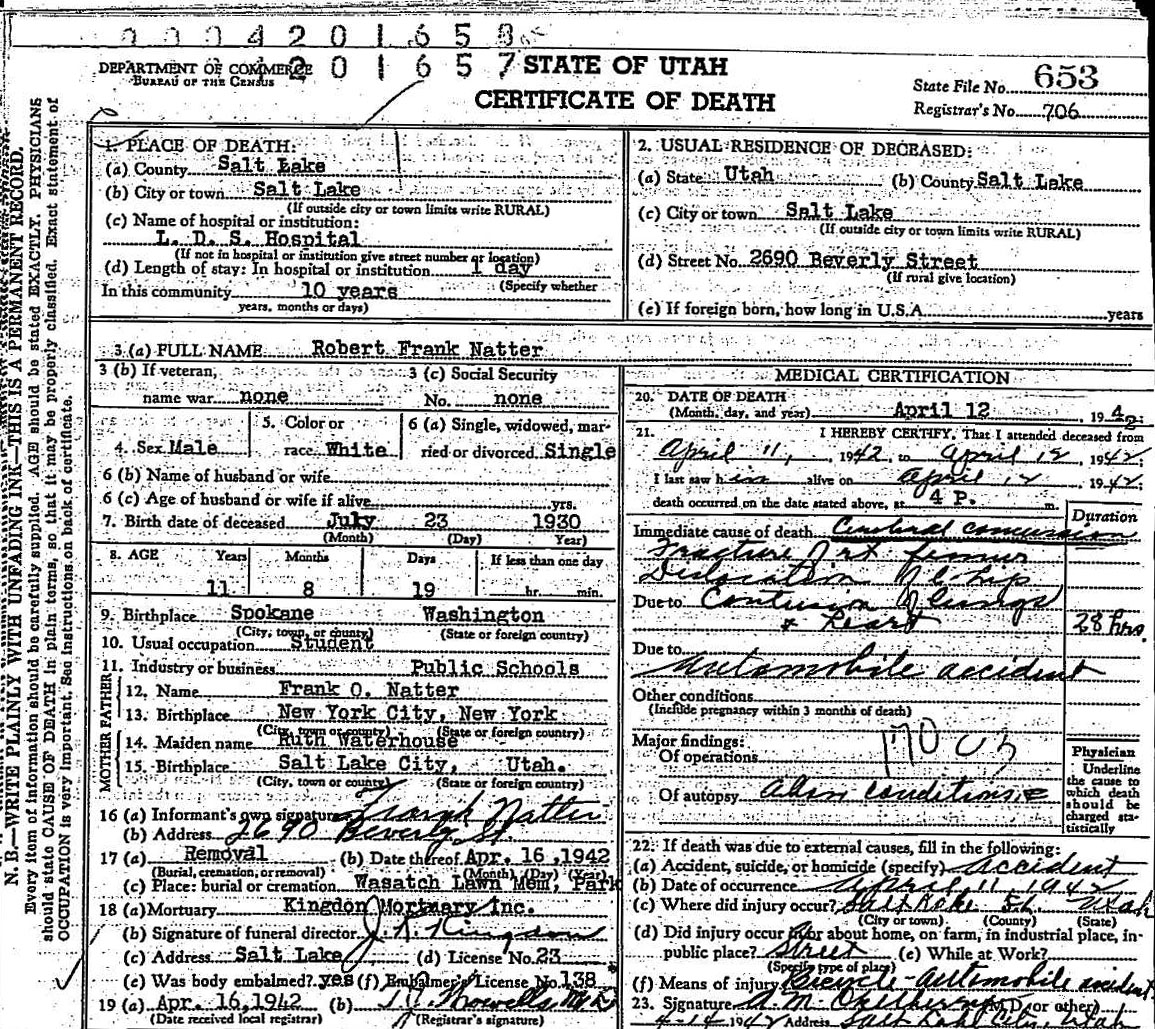 0 0 0 4 2 0 1 6 5 8
2 0 1 6 5 7
DEPARTMENT OF COMMERCE
BUREAU OF THE CENSUS
STATE OF UTAH
CERTIFICATE OF DEATH
State File No. 653
Registrar's No. 706
N. B.—WRITE PLAINLY WITH UNFADING INK—THIS IS A PERMANENT RECORD.
Every item of information should be carefully supplied. AGE should be stated EXACTLY. PHYSICIANS
should state CAUSE OF DEATH in plain terms, so that it may be properly classified. Exact statement of
OCCUPATION is very important. See instructions on back of certificate.
1. PLACE OF DEATH:
(a) County Salt Lake
(b) City or town Salt Lake
(If outside city or town limits write RURAL)
(c) Name of hospital or institution:
L. D. S. Hospital
(If not in hospital or institution give street number or location)
(d) Length of stay: In hospital or institution 1 day
(Specify whether
In this community 10 years
years, months or days)
2. USUAL RESIDENCE OF DECEASED:
(a) State Utah (b) County Salt Lake
(c) City or town Salt Lake
(If outside city or town limits write RURAL)
(d) Street No. 2690 Beverly Street
(If rural give location)
(e) If foreign born, how long in U.S.A. years
3 (a) FULL NAME Robert Frank Natter
3 (b) If veteran, 3 (c) Social Security
name war none No. none
4. Sex Male 5. Color or race White 6 (a) Single, widowed, married or divorced Single
6 (b) Name of husband or wife
6 (c) Age of husband or wife if alive yrs.
7. Birth date of deceased July 23 1930
(Month) (Day) Year)
8. AGE Years Months Days If less than one day
11 8 19 hr. min.
9. Birthplace Spokane Washington
(City, town, or county) (State or foreign country)
10. Usual occupation Student
11. Industry or business Public Schools
FATHER
12. Name Frank O. Natter
13. Birthplace New York City, New York
(City, town or county) (State or foreign country)
MOTHER
14. Maiden name Ruth Waterhouse
15. Birthplace Salt Lake City, Utah.
(City, town or county) (State or foreign country)
16 (a) Informant's own signature Frank Natter
(b) Address 2690 Beverly St
17 (a) Removal (b) Date thereof Apr. 16, 1942
(Burial, cremation, or removal) (Month) (Day) (Year)
(c) Place: burial or cremation Wasatch Lawn Mem, Park
18 (a) Mortuary Kingdon Mortuary Inc.
(b) Signature of funeral director Kingdon
(c) Address Salt Lake (d) License No. 23
(e) Was body embalmed? yes (f) Embalmer's License No. 138
19 (a) Apr. 16, 1942 (b)
(Date received local registrar) (Registrar's signature)
MEDICAL CERTIFICATION
20. DATE OF DEATH
(Month, day, and year) April 12, 1942
21. I HEREBY CERTIFY, That I attended deceased from
April 11, 1942, to April 12, 1942
I last saw him alive on April 12 1942,
death occurred on the date stated above, at 4 P. m.
Duration
Immediate cause of death Cerebral concussion
Fracture of rt femur
Dislocation of L hip
Due to Contusion of lungs
& heart 28 hrs.
Due to
Automobile accident
Other conditions
(Include pregnancy within 3 months of death)
Major findings:
Of operations
170
Of autopsy
Physician
Underline
the cause to
which death
should be
charged statistically
22. If death was due to external causes, fill in the following:
(a) Accident, suicide, or homicide (specify) Accident
(b) Date of occurrence April 11 1942
(c) Where did injury occur? Salt Lake Utah
(City or town) (County) (State)
(d) Did injury occur in or about home, on farm, in industrial place, in
public place? Street (e) While at Work?
(Specify type of place)
(f) Means of injury Bicycle-automobile accident
23. Signature A. M. (M.D. or other)
4-14 1942 Address Salt Lake City, Utah